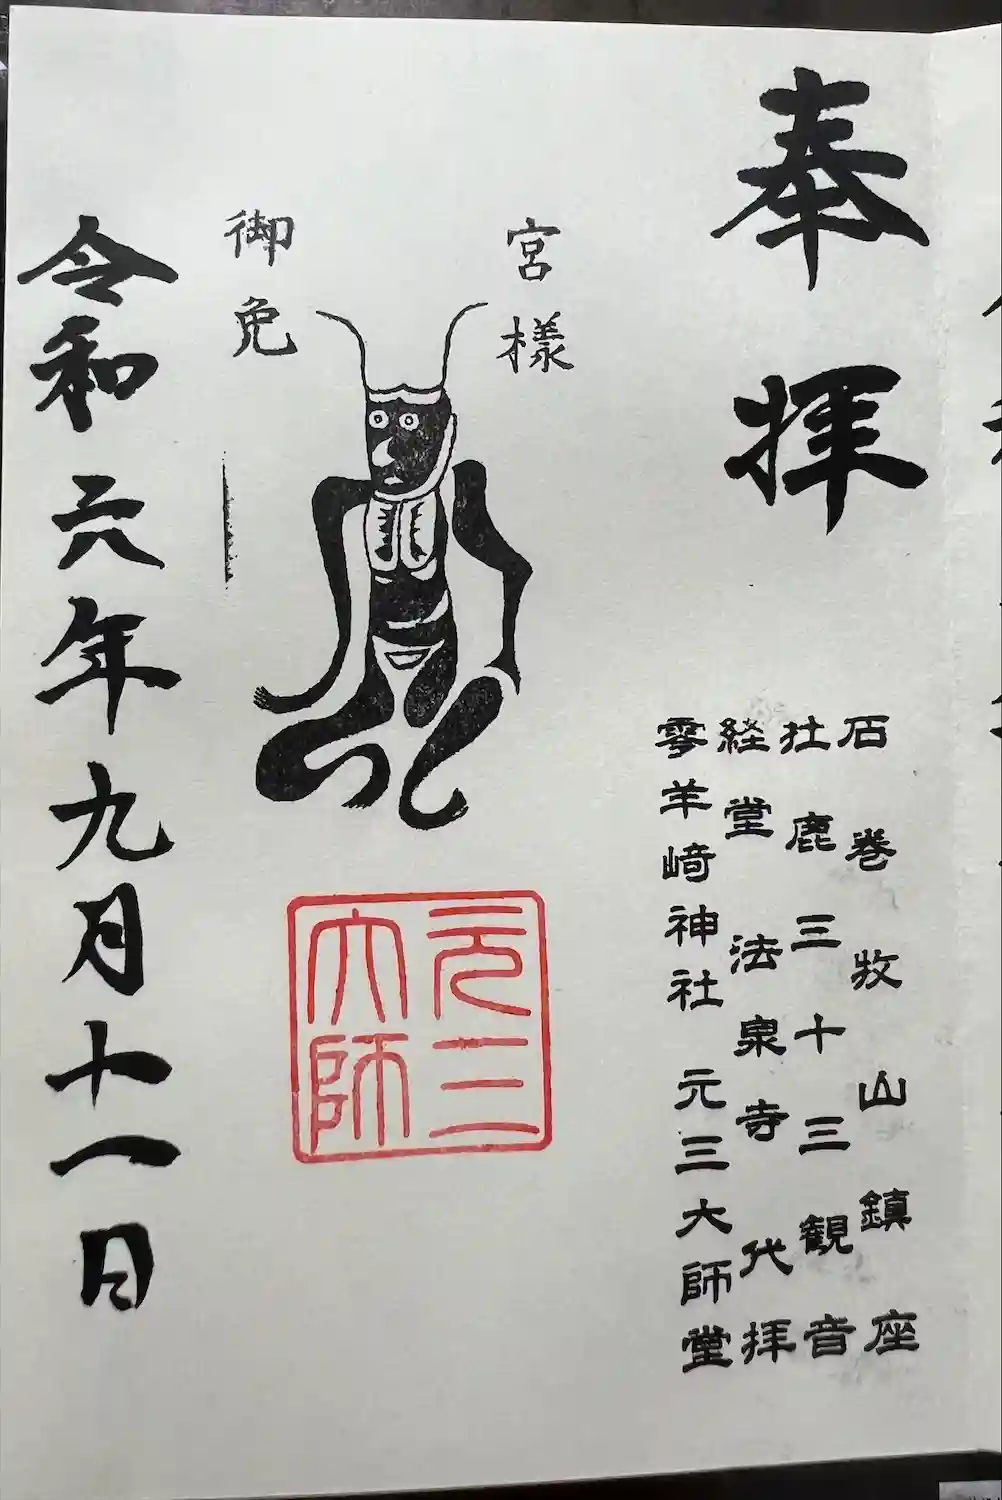 奉拝
石巻牧山鎮座
牡鹿三十三観音
経堂法泉寺代拝
零羊﨑神社 元三大師堂
宮様
御免
元三
大師
令和六年九月十一日